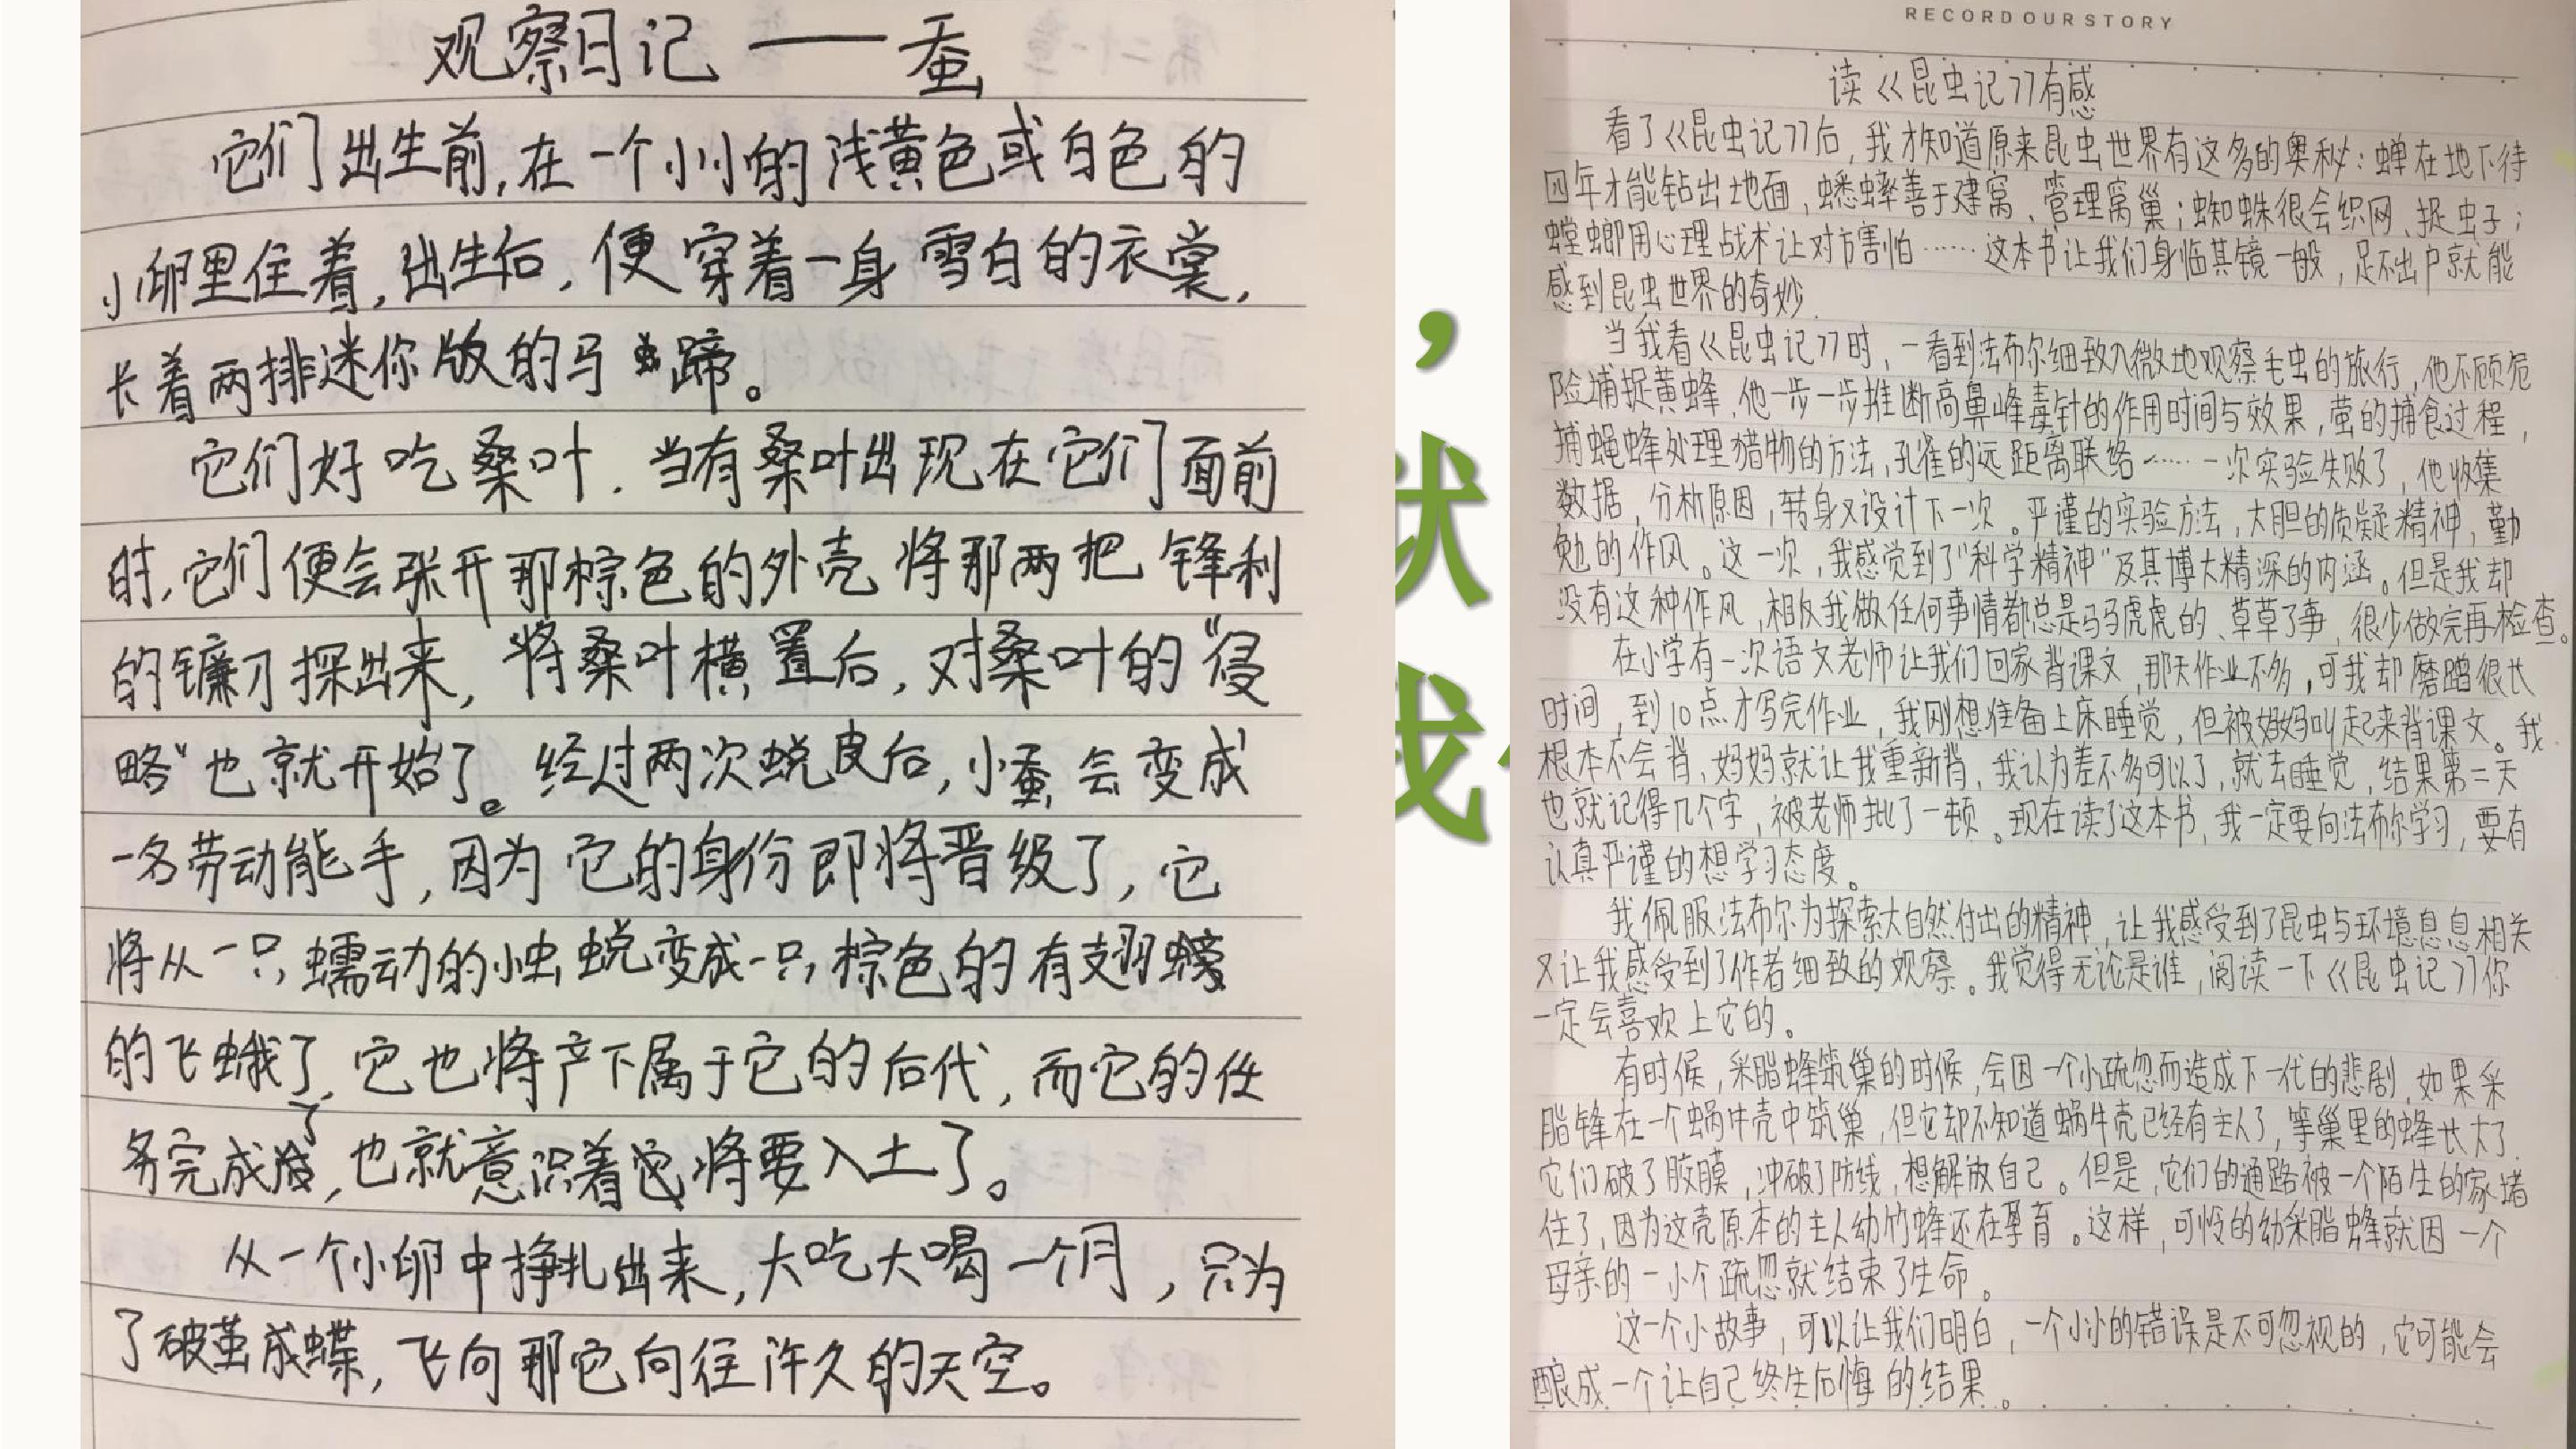 观察日记——蚕
它们出生前,在一个小小的浅黄色或白色的
小卵里住着,出生后,便穿着一身雪白的衣裳,
长着两排迷你版的马蹄。
它们好吃桑叶.当有桑叶出现在它们面前
时,它们便会张开那棕色的外壳将那两把锋利
的镰刀探出来,将桑叶横置后,对桑叶的“侵
略”也就开始了。经过两次蜕皮后,小蚕会变成
一名劳动能手,因为它的身份即将晋级了,它
将从一只蠕动的小虫蜕变成一只棕色的有翅膀
的飞蛾了,它也将产下属于它的后代,而它的任
务完成了,也就意识着它将要入土了。
从一个小卵中挣扎出来,大吃大喝一个月,只为
了破茧成蝶,飞向那它向往许久的天空。
,
状
我
RECORD OUR STORY
读《昆虫记》有感
看了《昆虫记》后,我才知道原来昆虫世界有这多的奥秘:蝉在地下待
四年才能钻出地面,蟋蟀善于建窝、管理窝巢;蜘蛛很会织网、捉虫子;
螳螂即用心理战术让对方害怕……这本书让我们身临其镜一般,足不出户就能
感到昆虫世界的奇妙.
当我看《昆虫记》时,一看到法布尔细致入微地观察毛虫的旅行,他不顾危
险埔捉黄蜂,他一步一步推断高鼻峰毒针的作用时间与效果,萤的捕食过程,
捕蝇蜂处理猎物的方法,孔雀的远距离联络……一次实验失败了,他收集
数据,分析原因,转身又设计下一次。严谨的实验方法,大胆的质疑精神,勤
勉的作风。这一次,我感觉到了“科学精神”及其博大精深的内涵。但是我却
没有这种作风,相反我做任何事情都总是马马虎虎的、草草了事,很少做完再检查。
在小学有一次语文老师让我们回家背课文,那天作业不多,可我却磨蹭很长
时间,到10点才写完作业,我刚想准备上床睡觉,但被妈妈叫起来背课文。我
根本不会背、妈妈就让我重新背,我认为差不多可以了,就去睡觉,结果第二天
也就记得几个字,被老师批了一顿。现在读了这本书,我一定要向法布尔学习,要有
认真严谨的想学习态度。
我佩服法布尔为探索大自然付出的精神,让我感受到了昆虫与环境息息相关
又让我感受到了作者细致的观察。我觉得无论是谁,阅读一下《昆虫记》你
一定会喜欢上它的。
有时候,采脂蜂筑巢的时候,会因一个小疏忽而造成下一代的悲剧,如果采
脂锋在一个蜗牛壳中筑巢,但它却不知道蜗牛壳已经有主人了,等巢里的蜂长大了
它们破了胶膜,冲破了防线,想解放自己。但是,它们的通路被一个陌生的家堵
住了,因为这壳原本的主人幼竹蜂还在孕育。这样,可怜的幼采脂蜂就因一个
母亲的一小个疏忽就结束了生命。
这一个小故事,可以让我们明白,一个小小的错误是不可忽视的,它可能会
酿成一个让自己终生后悔的结果。